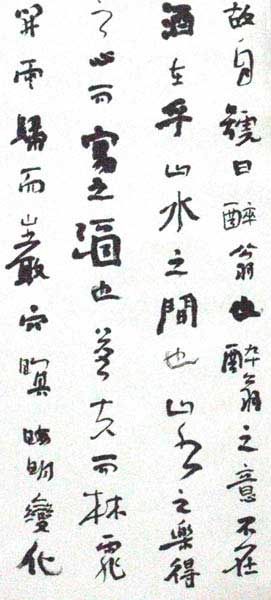 故自號曰醉翁也醉翁之意不在
酒在乎山水之間也山水之樂得
之心而寓之酒也若夫而林霏
開雲歸而巖穴暝晦明變化